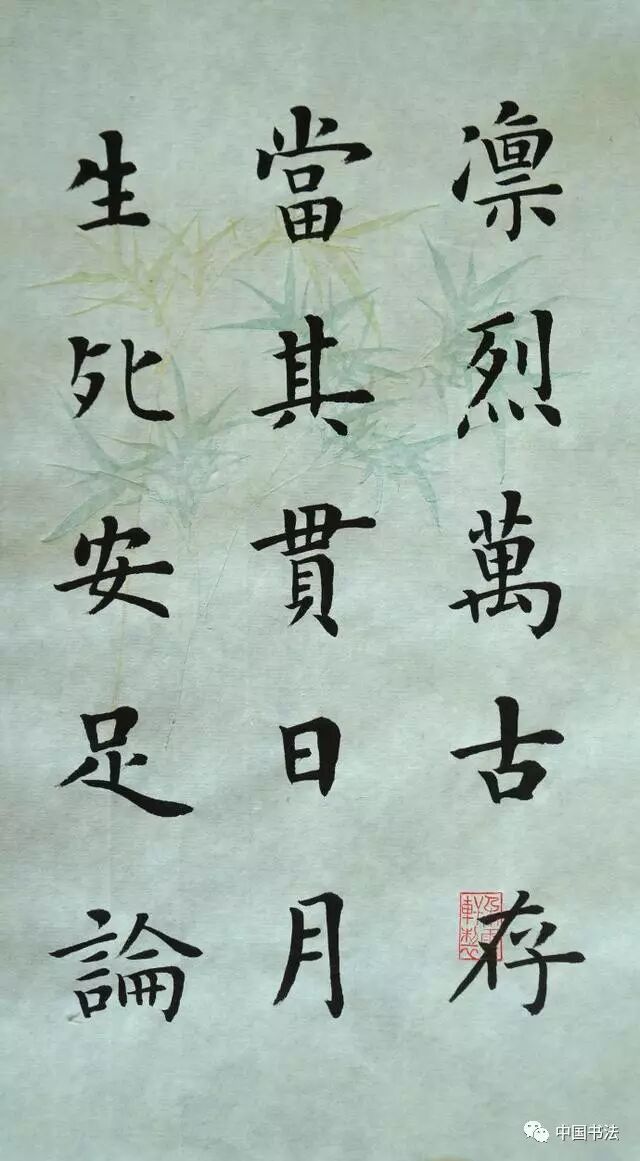 凛烈萬古存
當其貫日月
生死安足論
中国书法